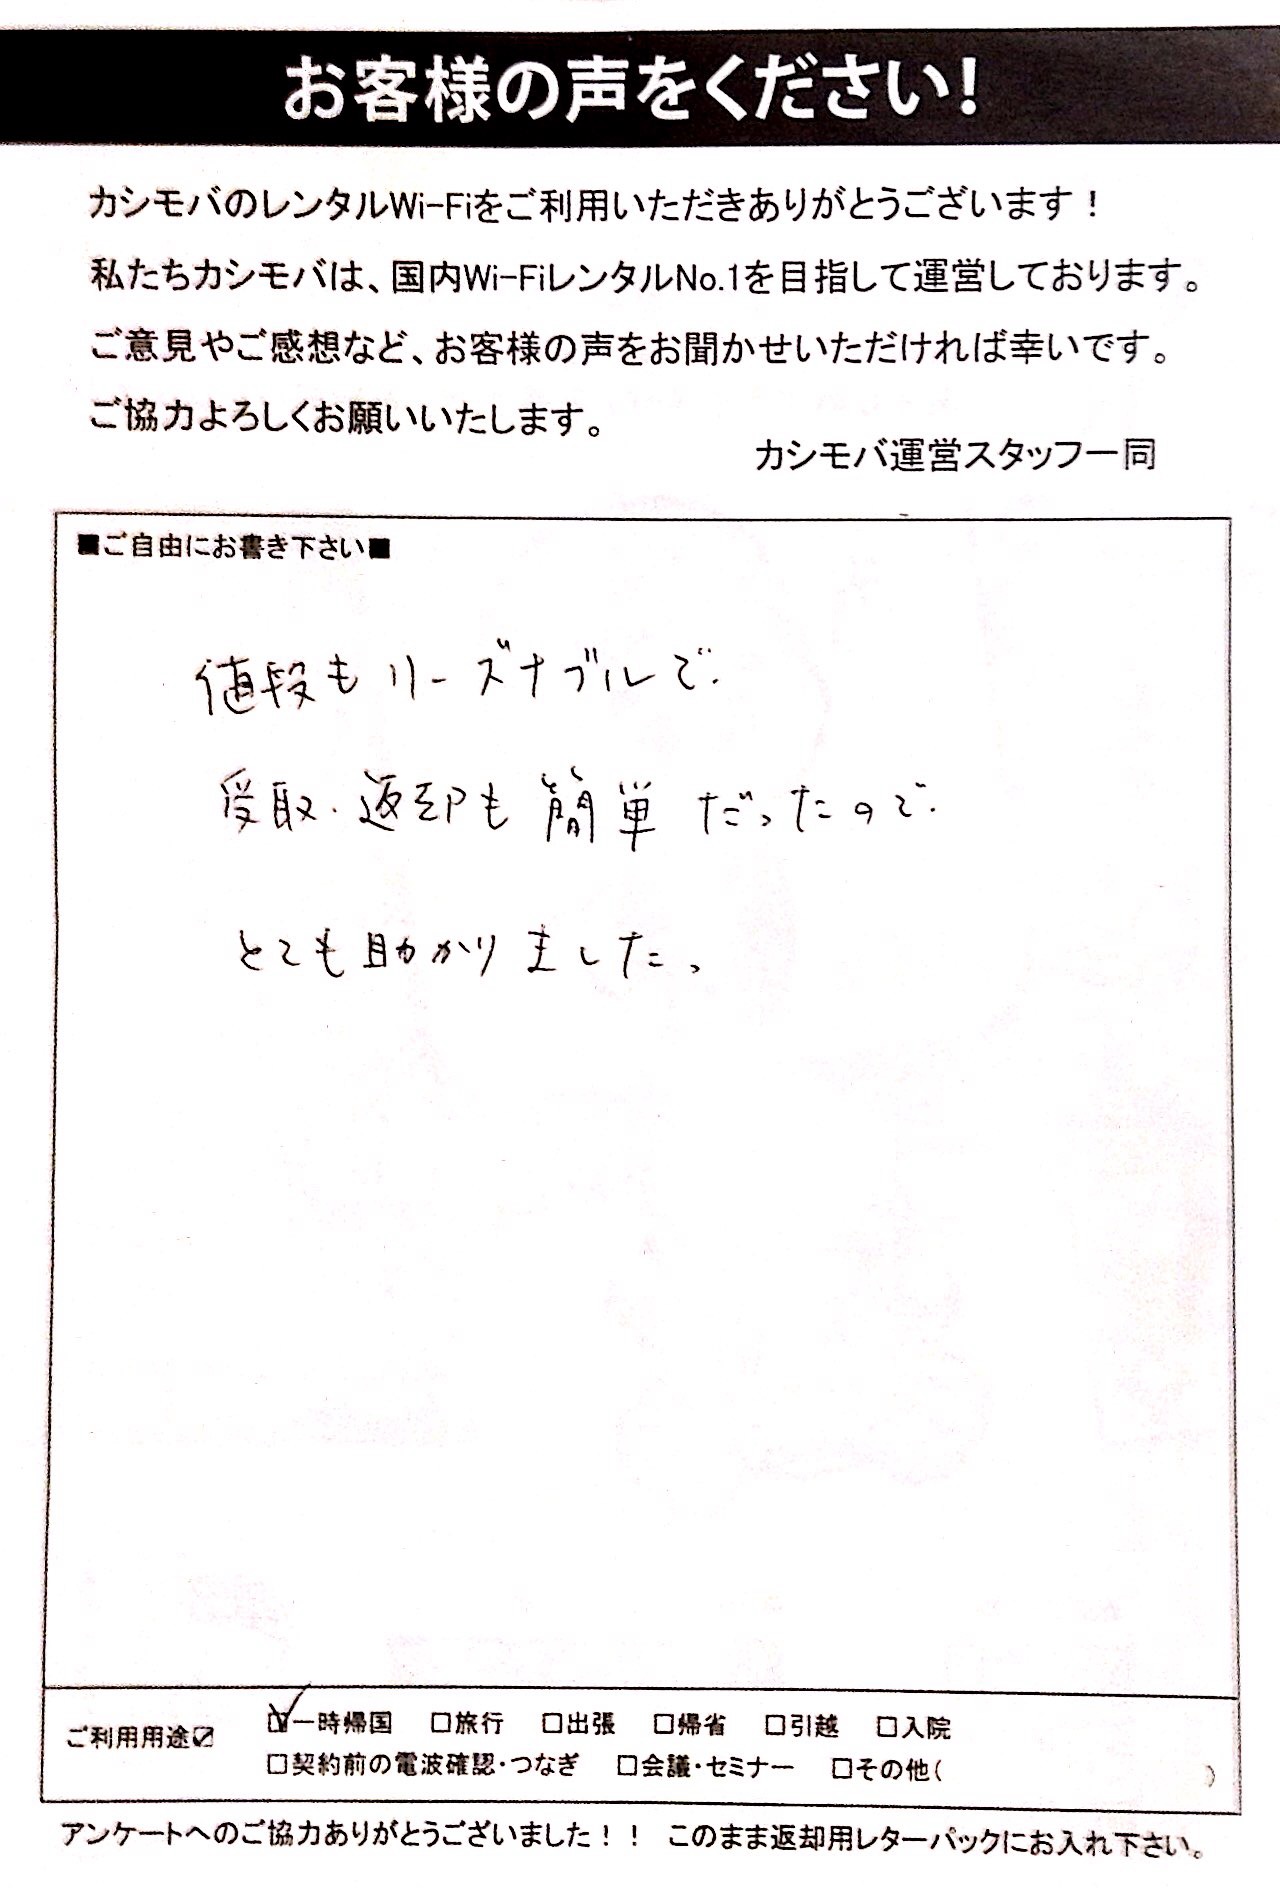 お客様の声をください!
カシモバのレンタルWi-Fiをご利用いただきありがとうございます！
私たちカシモバは、国内Wi-FiレンタルNo.1を目指して運営しております。
ご意見やご感想など、お客様の声をお聞かせいただければ幸いです。
ご協力よろしくお願いいたします。
カシモバ運営スタッフ一同
■ご自由にお書き下さい■
値段もリーズナブルで、
受取・返却も簡単だったので、
とても助かりました。
ご利用用途☑ ☑一時帰国 □旅行 □出張 □帰省 □引越 □入院
□契約前の電波確認・つなぎ □会議・セミナー □その他( )
アンケートへのご協力ありがとうございました！！ このまま返却用レターパックにお入れ下さい。